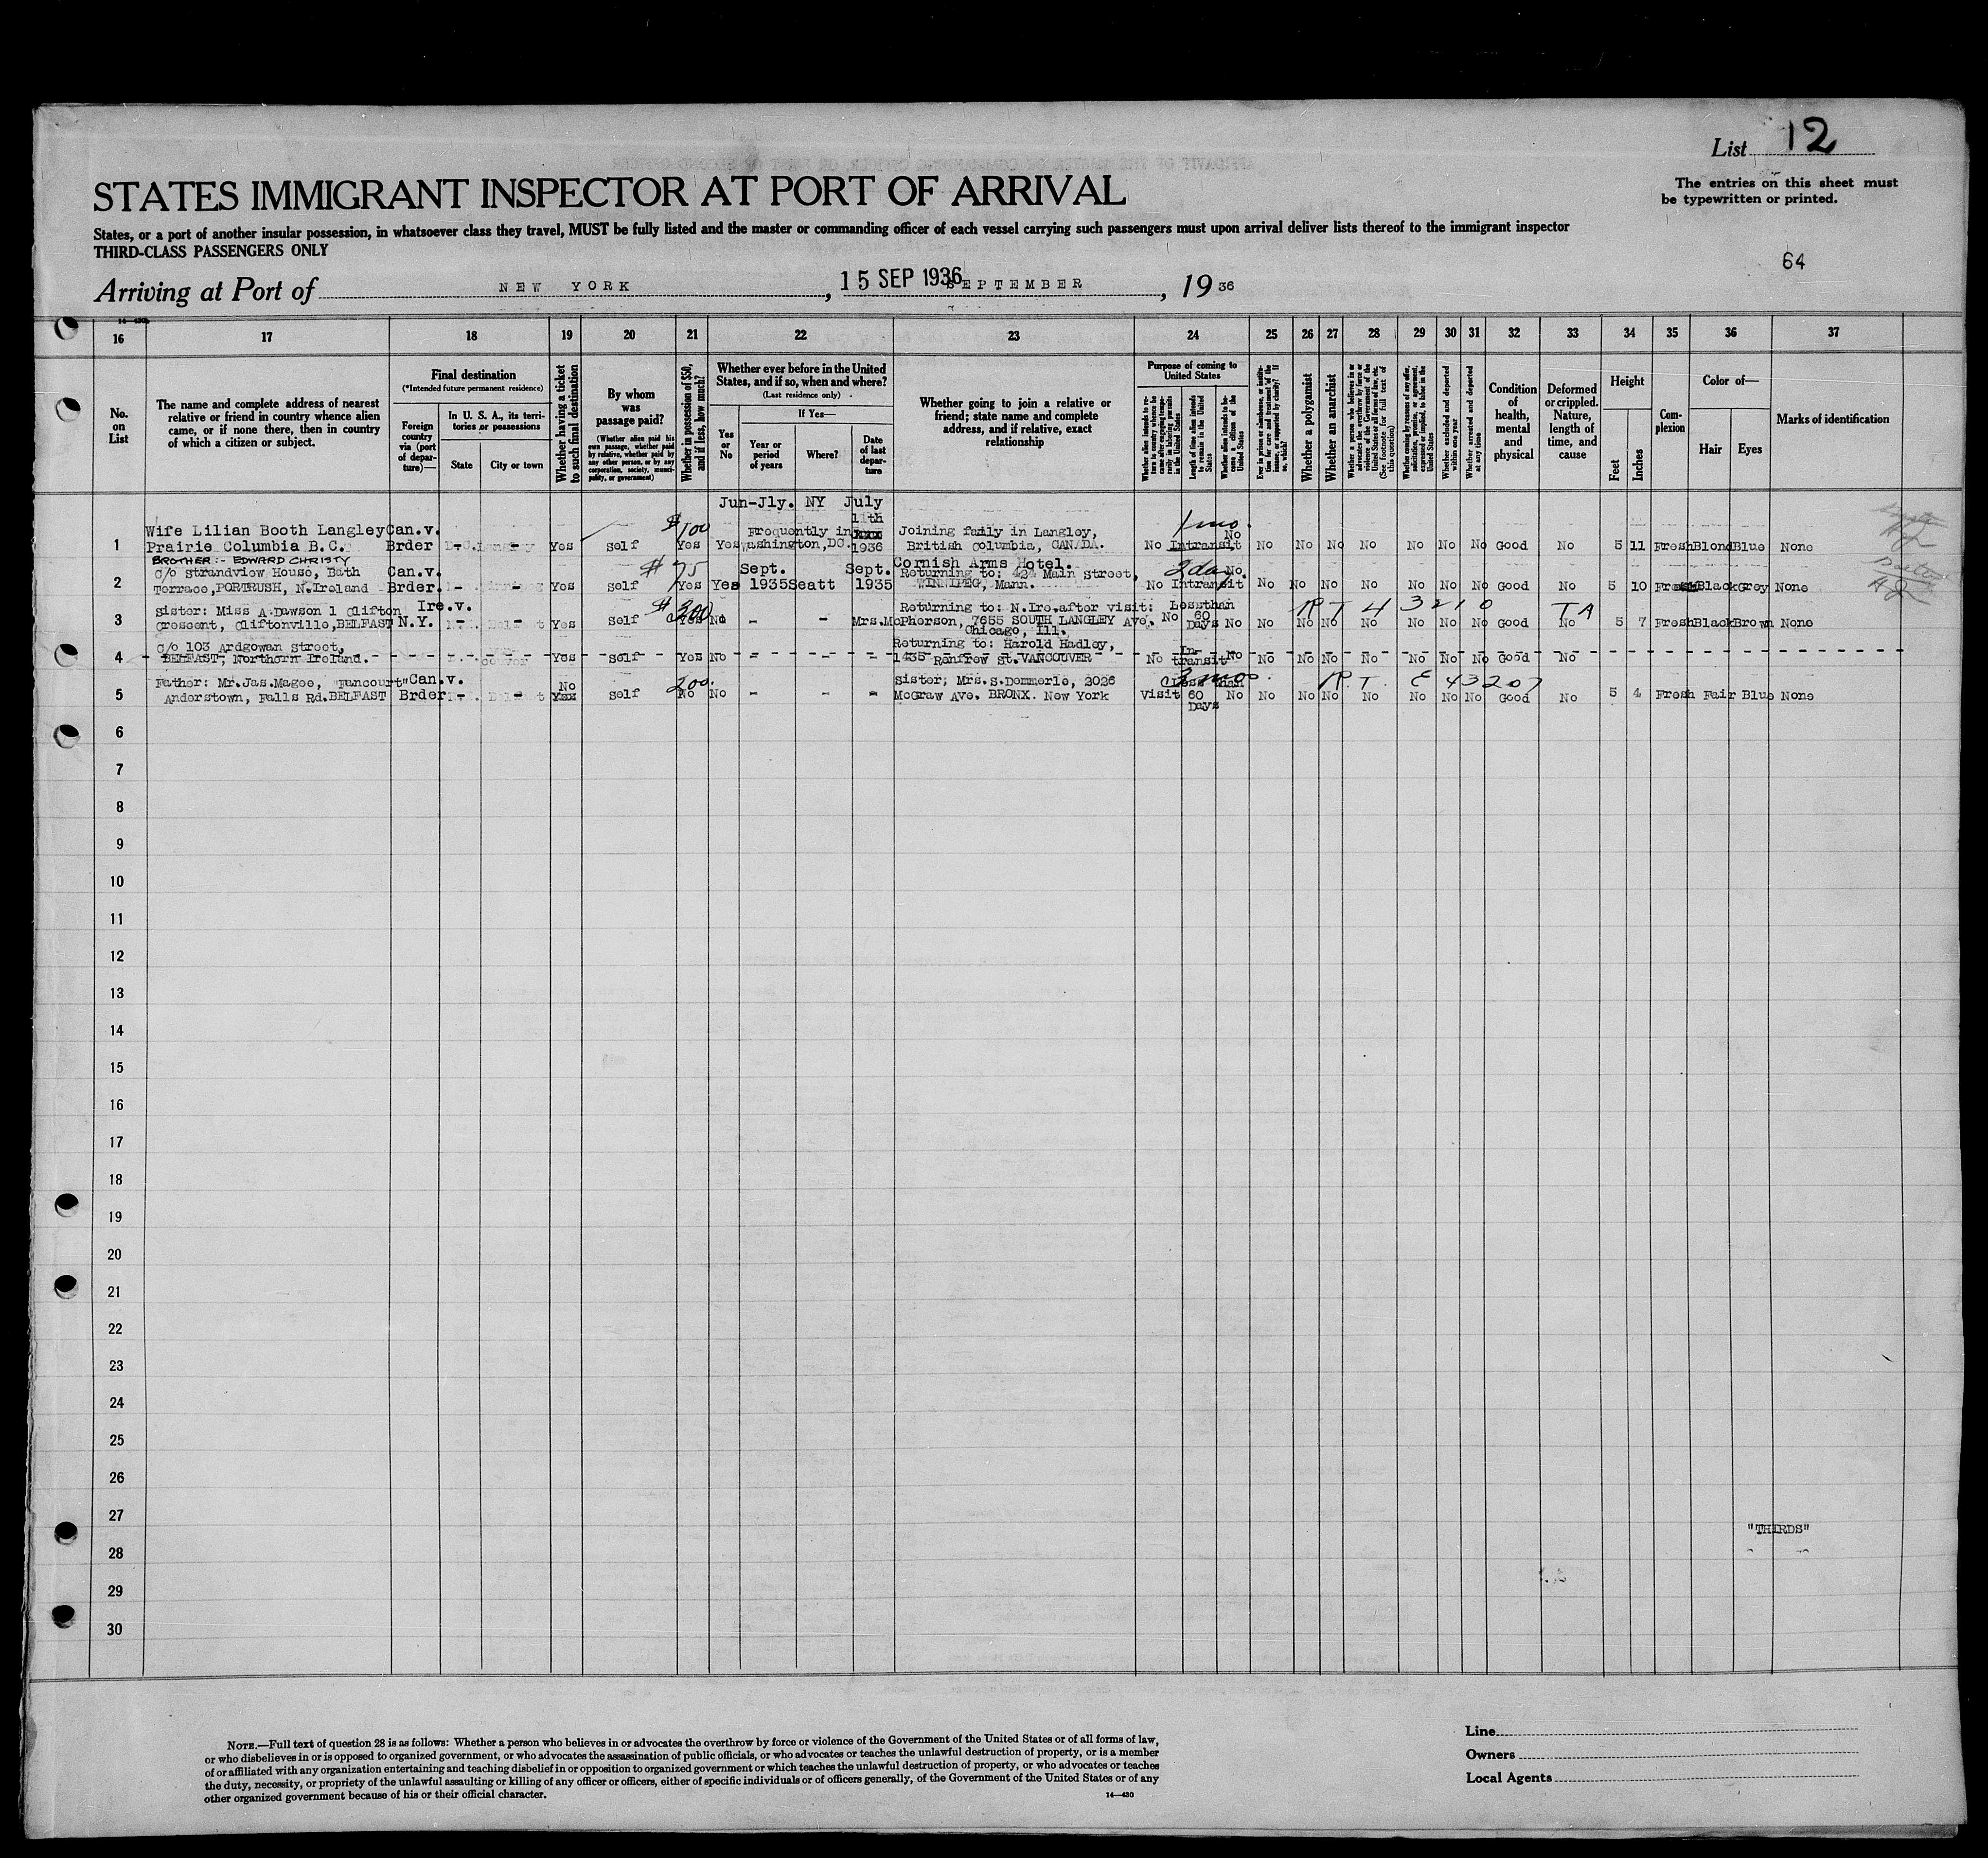 List 12
STATES IMMIGRANT INSPECTOR AT PORT OF ARRIVAL
The entries on this sheet must
be typewritten or printed.
States, or a port of another insular possession, in whatsoever class they travel, MUST be fully listed and the master or commanding officer of each vessel carrying such passengers must upon arrival deliver lists thereof to the immigrant inspector
THIRD-CLASS PASSENGERS ONLY
64
Arriving at Port of NEW YORK, 15 SEP 1936 SEPTEMBER, 19 36
16 17 18 19 20 21 22 23 24 25 26 27 28 29 30 31 32 33 34 35 36 37
No. on List
The name and complete address of nearest relative or friend in country whence alien came, or if none there, then in country of which a citizen or subject.
Final destination
(*Intended future permanent residence)
Foreign country via (port of departure)—
In U. S. A., its territories or possessions
State
City or town
Whether having a ticket to such final destination
By whom was passage paid?
(Whether alien paid his own passage, whether paid by relative, whether paid by any other person, or by any corporation, society, municipality, or government)
Whether in possession of $50, and if less, how much?
Whether ever before in the United States, and if so, when and where?
(Last residence only)
Yes or No
If Yes—
Year or period of years
Where?
Date of last departure
Whether going to join a relative or friend; state name and complete address, and if relative, exact relationship
Purpose of coming to United States
Length of time alien intends to remain in the United States
Whether alien intends to become a citizen of the United States
Whether a polygamist
Whether an anarchist
(See footnote for full text of this question)
Whether excluded and deported within one year
Whether arrested and deported at any time
Condition of health, mental and physical
Deformed or crippled. Nature, length of time, and cause
Height
Feet
Inches
Complexion
Color of—
Hair
Eyes
Marks of identification
Jun-Jly. NY July
11th
Wife Lilian Booth Langley Can.v. $100 Frequently in Joining faily in Langley, 1 mo. No
1 Prairie Columbia B.C. Brder Yes Self Yes Yes Washington,DC. 1936 British Columbia, CANADA. No Intransit No No No No No No No Good No 5 11 Fresh Blond Blue None
BROTHER:- EDWARD CHRISTY
c/o Strandview House, Bath Can.v. $75 Sept. Sept. Cornish Arms Hotel.
Returning to: 424 Main Street, 2 da No
2 Terrace, PORTRUSH, N.Ireland Brder. Yes Self Yes Yes 1935 Seatt 1935 WINNIPEG, Mann. No Intransit No No No No No No No Good No 5 10 Fresh Black Grey None
Sister: Miss A.Dawson 1 Clifton Ire.v. $300 Returning to: N.Ire.after visit: Lessthan R T 4 3 2 1 0 T A
3 Crescent, Cliftonville, BELFAST N.Y. Yes Self Yes No - - Mrs.McPherson, 7655 SOUTH LANGLEY Ave. No 60 Days No No No No No No No No Good No 5 7 Fresh Black Brown None
Chicago, Ill.
c/o 103 Ardgowan Street, Returning to: Harold Hadley,
4 BELFAST, Northern Ireland. Yes Self Yes No - - - 1435 Renfrew St. VANCOUVER No In-transit No No No No No No No No Good No
Father: Mr.Jas.Magee, "Fancourt" Can.v. No 200. Sister; Mrs.S.Demmerle, 2026 2 mos. Less than R.T. E 43207
5 Anderstown, Falls Rd. BELFAST Brder Yes Self No No - - - McGraw Ave. BRONX. New York Visit 60 Days No No No No No No No No Good No 5 4 Fresh Fair Blue None
6
7
8
9
10
11
12
13
14
15
16
17
18
19
20
21
22
23
24
25
26
27
"THIRDS"
28
29
30
NOTE.—Full text of question 28 is as follows: Whether a person who believes in or advocates the overthrow by force or violence of the Government of the United States or of all forms of law,
or who disbelieves in or is opposed to organized government, or who advocates the assassination of public officials, or who advocates or teaches the unlawful destruction of property, or is a member
of or affiliated with any organization entertaining and teaching disbelief in or opposition to organized government or which teaches the unlawful destruction of property, or who advocates or teaches
the duty, necessity, or propriety of the unlawful assaulting or killing of any officer or officers, either of specific individuals or of officers generally, of the Government of the United States or of any
other organized government because of his or their official character.
14—430
Line
Owners
Local Agents